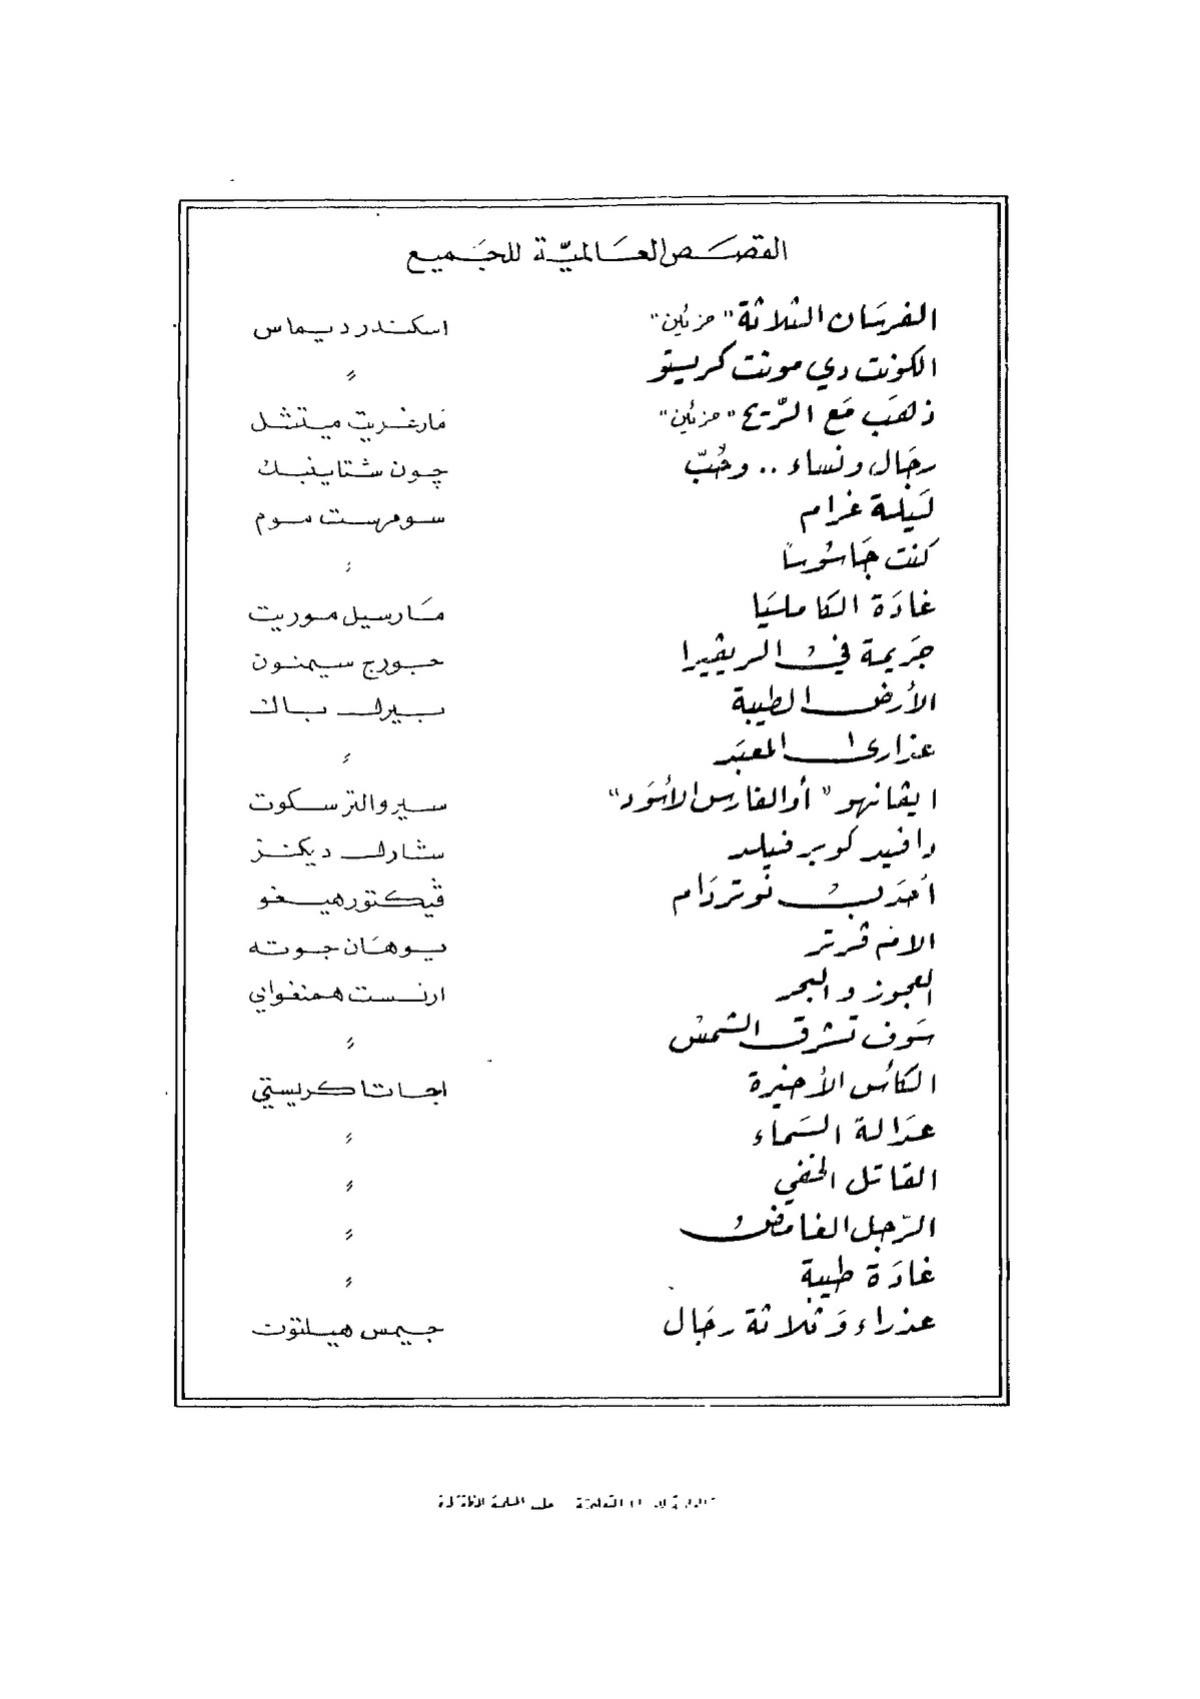 القصَص العَالميّة للجَميع
الفرسَان الثلاثة "جزئين" اسكندر ديماس
الكونت دي مونت كريستو "
ذهَب مَع الرّيح "جزئين" مَارغريت ميتشل
رجَال ونساء .. وحُبّ چون شتاينبك
لَيلة غرام سومرست موم
كنت جَاسُوسًا "
غادَة الكاميليَا مَارسيل موريت
جَريمة في الريڤييرا جورج سيمنون
الأرض الطيبة بيرل باك
عذارى المعبَد "
ايڤانهو "أو الفارس الأسوَد" سير والتر سكوت
دافيد كوبر فيلد شارل ديكنز
أحدَب نوتردَام ڤيكتور هيغو
الام ڤرتر يوهَان جوته
العجوز والبحر ارنست همنغواي
سَوف تشرق الشمس "
الكأس الأخيرة اجاتا كريستي
عدَالة السَماء "
القاتل الخفي "
الرّجل الغامض "
غادَة طيبة "
عذراء وَثلاثة رجَال جيمس هيلتون